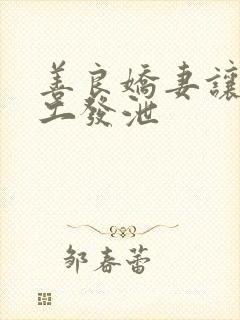 善良嬌妻讓
工發泄
鄒春蕾